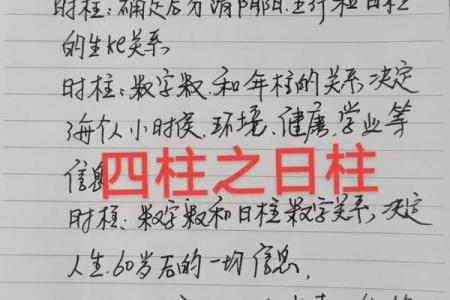 时柱：确定后分清阴阳.五行和日柱
的生ke关系.
时柱：数字数.和年柱的关系.决定
每个人小时候.环境.健康.学业等
信息
四柱之日柱
时柱：数字数和日柱数字关系.决定
人生.60岁后的一切信息.